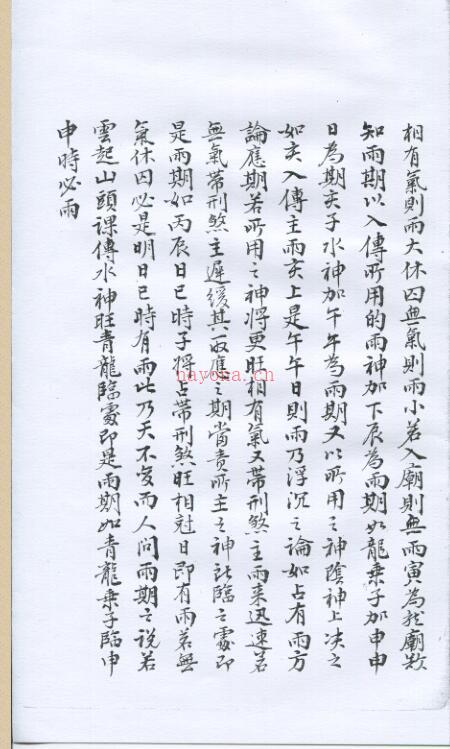 相有氣則雨大休囚無氣則雨小若入廟則無雨寅為龍廟欺
知雨期以入傳所用的雨神加下辰為雨期如龍乗子加申申
日為期亥子水神加午午為雨期又以所用之神陰神上决之
如亥入傳主雨亥上是午午日則雨乃浮沉之論如占有雨方
論應期若所用之神將更旺相有氣又帶刑煞主雨來迅速若
無氣帶刑煞主遲緩其一取應之期當責所主之神所臨之處即
是雨期如丙辰日巳時子將占帶刑煞旺相冠日即有雨若無
氣休囚必是明日巳時有雨此乃天不变而人問雨期之説若
雲起山頭課傳水神旺青龍臨處即是雨期如青龍乗子臨申
申時必雨
nayona.cn